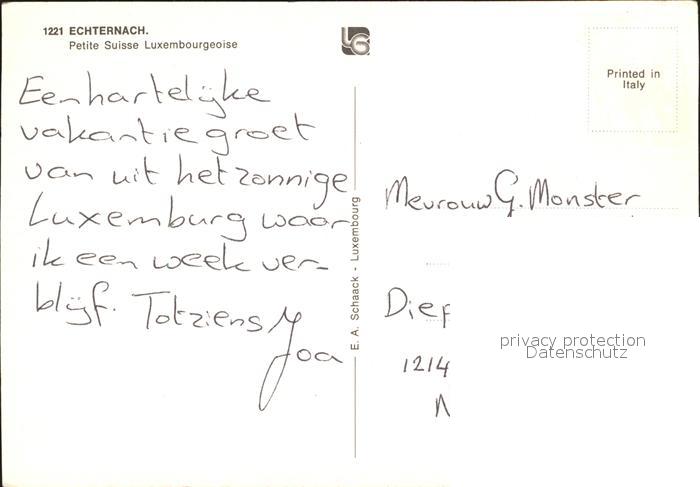 1221 ECHTERNACH.
Petite Suisse Luxembourgeoise
Een hartelijke
vakantie groet
van uit het zonnige
Luxemburg waar
ik een week ver-
blijf. Tot ziens
Joa
E. A. Schaack - Luxembourg
LG
Printed in
Italy
Mevrouw G. Monster
Diep
1214
N
privacy protection
Datenschutz